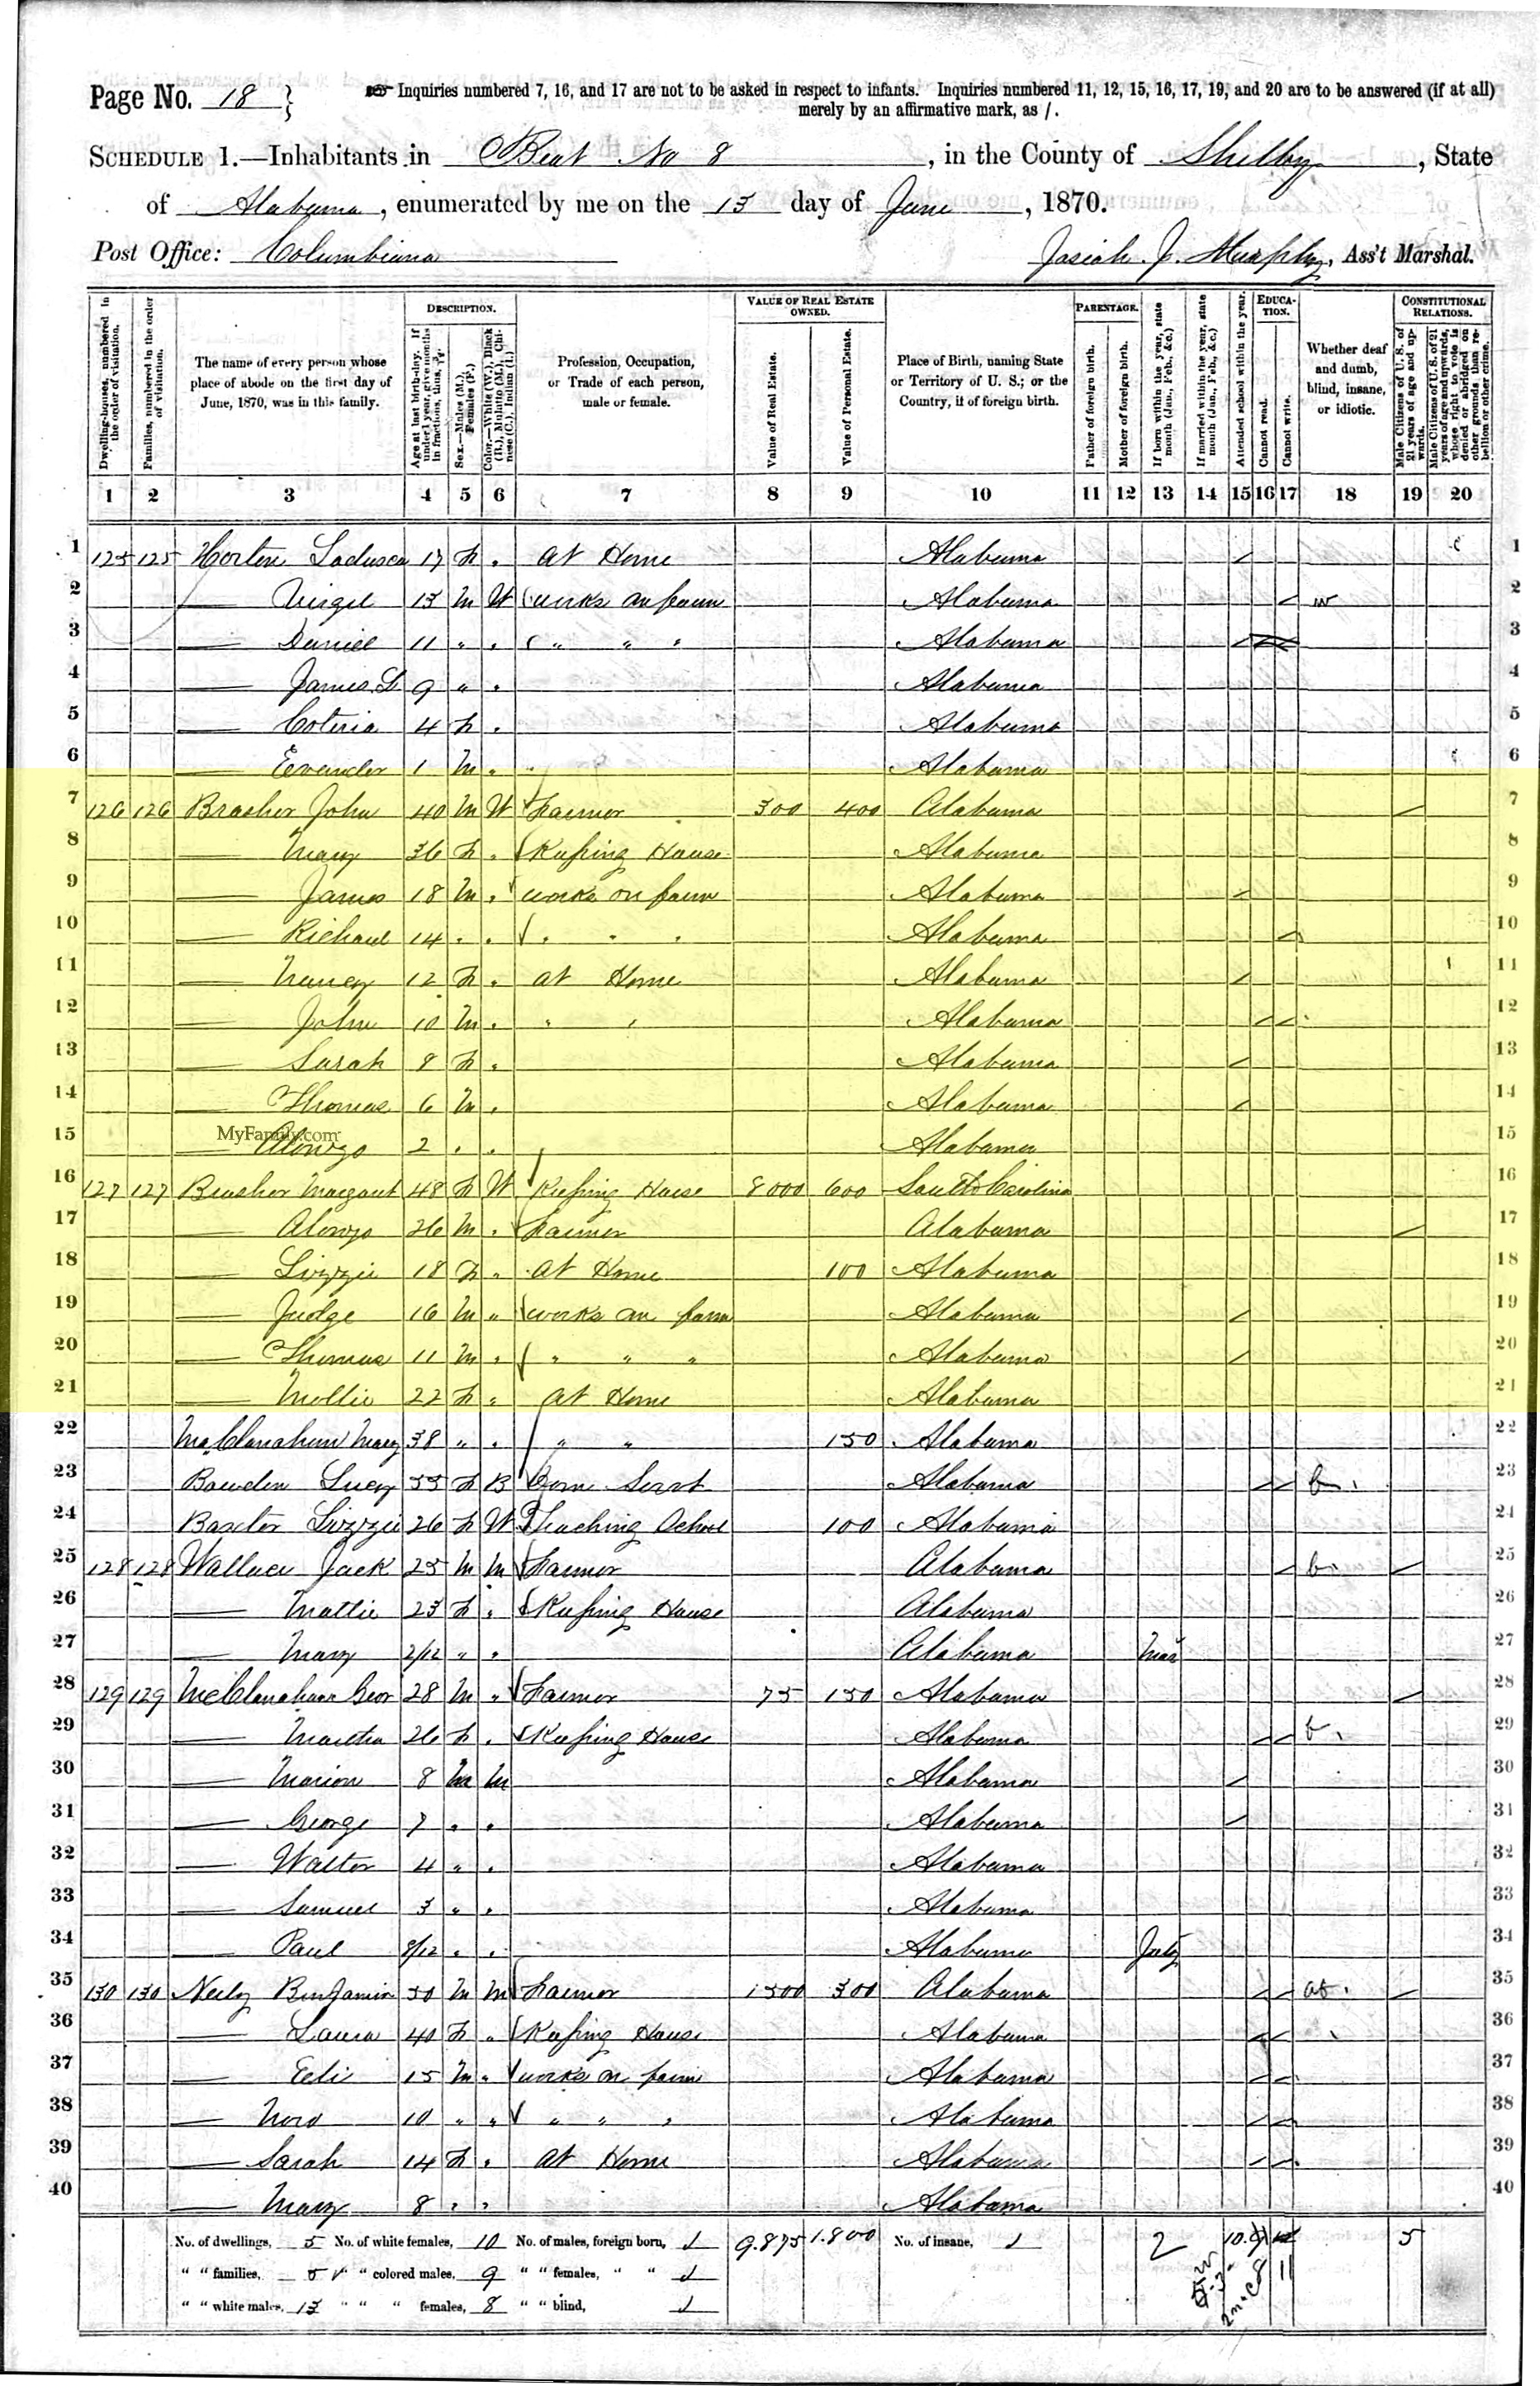 Page No. 18 }
☞ Inquiries numbered 7, 16, and 17 are not to be asked in respect to infants. Inquiries numbered 11, 12, 15, 16, 17, 19, and 20 are to be answered (if at all)
merely by an affirmative mark, as /.
SCHEDULE 1.—Inhabitants in Beat No 8, in the County of Shelby, State
of Alabama, enumerated by me on the 13 day of June, 1870.
Post Office: Columbiana Josiah J. Murphy, Ass't Marshal.
DESCRIPTION. VALUE OF REAL ESTATE OWNED. PARENTAGE. EDUCATION. CONSTITUTIONAL RELATIONS.
Dwelling-houses, numbered in the order of visitation.
Families, numbered in the order of visitation.
The name of every person whose place of abode on the first day of June, 1870, was in this family.
Age at last birth-day. If under 1 year, give months in fractions, thus, 3/12.
Sex.—Males (M.), Females (F.)
Color.—White (W.), Black (B.), Mulatto (M.), Chinese (C.), Indian (I.)
Profession, Occupation, or Trade of each person, male or female.
Value of Real Estate.
Value of Personal Estate.
Place of Birth, naming State or Territory of U. S.; or the Country, if of foreign birth.
Father of foreign birth.
Mother of foreign birth.
If born within the year, state month (Jan., Feb., &c.)
If married within the year, state month (Jan., Feb., &c.)
Attended school within the year.
Cannot read.
Cannot write.
Whether deaf and dumb, blind, insane, or idiotic.
Male Citizens of U. S. of 21 years of age and upwards.
Male Citizens of U. S. of 21 years of age and upwards, whose right to vote is denied or abridged on other grounds than rebellion or other crime.
1 2 3 4 5 6 7 8 9 10 11 12 13 14 15 16 17 18 19 20
1 125 125 Horton Laduska 17 F " at Home Alabama / 1
2 — Virgil 13 M W works on farm Alabama / w 2
3 — Daniel 11 " " " " " Alabama / 3
4 — James L 9 " " Alabama 4
5 — 4 F " Alabama 5
6 — Evander 1 M " Alabama 6
7 126 126 Brasher John 40 M W Farmer 300 400 Alabama / 7
8 — Mary 36 F " Keeping House Alabama 8
9 — James 18 M " works on farm Alabama / 9
10 — Richard 14 " " " " " Alabama / 10
11 — Nancy 12 F " at Home Alabama / 11
12 — John 10 M " " " Alabama / / 12
13 — Sarah 8 F " Alabama / 13
14 — Thomas 6 M " Alabama / 14
MyFamily.com
15 — Alonzo 2 " " Alabama 15
16 127 127 Brasher Margaret 48 F W Keeping House 8000 600 South Carolina 16
17 — Alonzo 26 M " Farmer Alabama / 17
18 — Lizzie 18 F " at Home 100 Alabama 18
19 — Judge 16 M " works on farm Alabama / 19
20 — Thomas 11 M " " " " Alabama / 20
21 — Mollie 22 F " at Home Alabama 21
22 McClanahan Mary 38 " " " " 150 Alabama 22
23 Bowden Lucy 55 F B Dom Servt Alabama / / b 23
24 Baxter Lizzie 26 F W Teaching School 100 Alabama 24
25 128 128 Wallace Jack 25 M M Farmer Alabama / b / 25
26 — Mattie 23 F " Keeping House Alabama 26
27 — Mary 2/12 " " Alabama Mar 27
28 129 129 McClanahan Geor 28 M " Farmer 75 150 Alabama / 28
29 — Martha 26 F " Keeping House Alabama / / b 29
30 — Marion 8 M M Alabama / 30
31 — George 7 " " Alabama / 31
32 — Walter 4 " " Alabama 32
33 — Samuel 3 " " Alabama 33
34 — Paul 8/12 " " Alabama July 34
35 130 130 Neely Benjamin 50 M M Farmer 1500 300 Alabama / / / 35
36 — Laura 40 F " Keeping House Alabama / / 36
37 — Eli 15 M " works on farm Alabama / / 37
38 — 10 " " " " " Alabama / / 38
39 — Sarah 14 F " at Home Alabama / / 39
40 — Mary 8 " " Alabama 40
No. of dwellings, 5 No. of white females, 10 No. of males, foreign born, 9.875 1.800 No. of insane, 2 10 11 5
" " families, 5 " " colored males, 9 " " females, " "
" " white males, 13 " " " females, 8 " " blind,